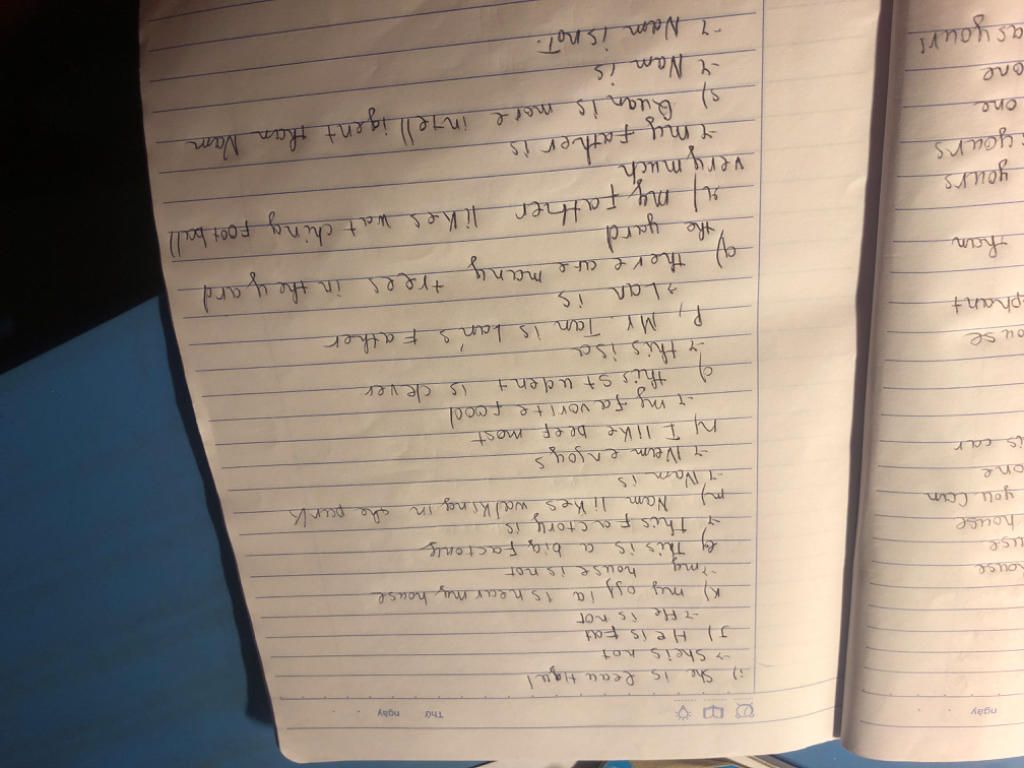 Thứ ngày
i) She is beautiqul
→ She is not
J) He is fat
→ He is not
K) my is near my house
→ my house is not
l) This is a big factory
→ This factory is
m) Nam likes walking in the park
→ Nam is
→ Nam enjoys
N) I like beef most
→ my favorite food
o) this student is clever
→ this is a
P, Mr. Tan is Lan's Father
→ Lan is
q) there are many trees in the yard
the yard
r) my Father likes watching football
very much
→ my father is
s) Quan is more intelligent than Nam
→ Nam is
→ Nam is not
ngày
house
use
house
you can
one
is car
ouse
phant
than
yours
yours
one
one
as yours